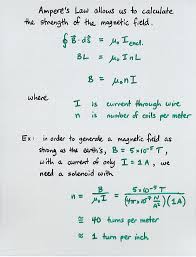 Ampere's Law allows us to calculate
the strength of the magnetic field.
∮ B⃗·ds⃗ = μ₀ I encl.
BL = μ₀ I n L
B = μ₀ n I
where
I is current through wire
n is number of coils per meter
Ex: in order to generate a magnetic field as
strong as the earth's, B = 5×10⁻⁵ T
with a current of only I = 1A, we
need a solenoid with
n = B / μ₀ I = 5×10⁻⁵ T / (4π×10⁻⁷ N/A²)(1A)
≅ 40 turns per meter
≈ 1 turn per inch